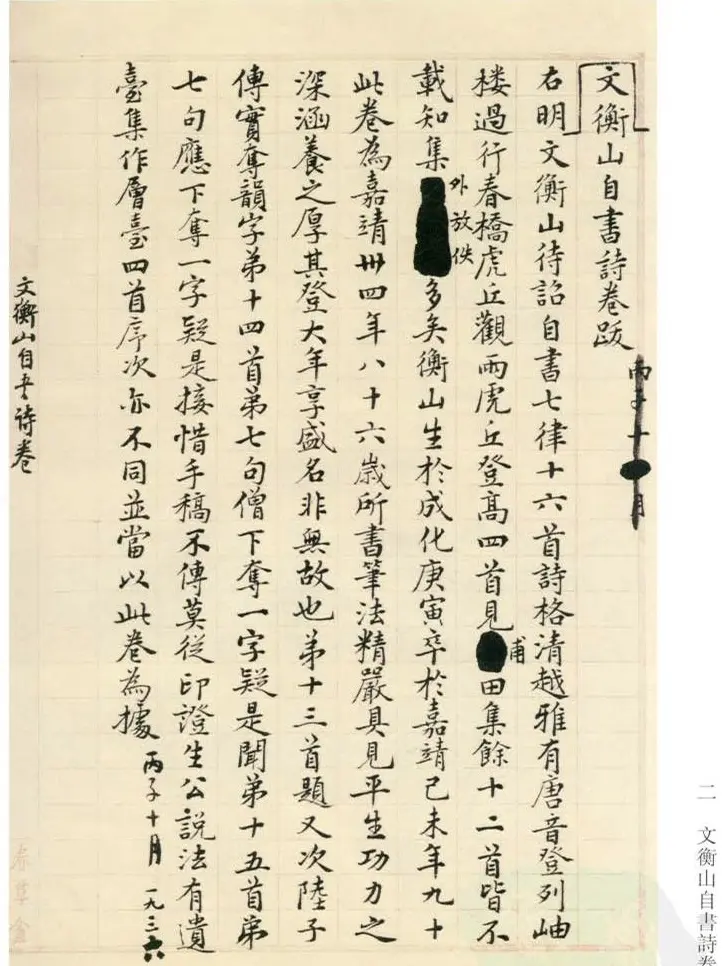 文衡山自書詩卷跋 丙子十月
右明文衡山待詔自書七律十六首詩格清越雅有唐音登列岫
楼過行春橋虎丘觀雨虎丘登高四首見甫田集餘十二首皆不
載知集外放佚多矣衡山生於成化庚寅卒於嘉靖己未年九十
此卷為嘉靖卅四年八十六歲所書筆法精嚴具見平生功力之
深涵養之厚其登大年享盛名非無故也弟十三首題又次陸子
傳實奪韻字弟十四首弟七句僧下奪一字疑是聞弟十五首弟
七句應下奪一字疑是接惜手稿不傳莫從印證生公說法有遺
臺集作層臺四首序次亦不同並當以此卷為據 丙子十月 一九三六
文衡山自书詩卷
春草盦
二 文衡山自書詩卷